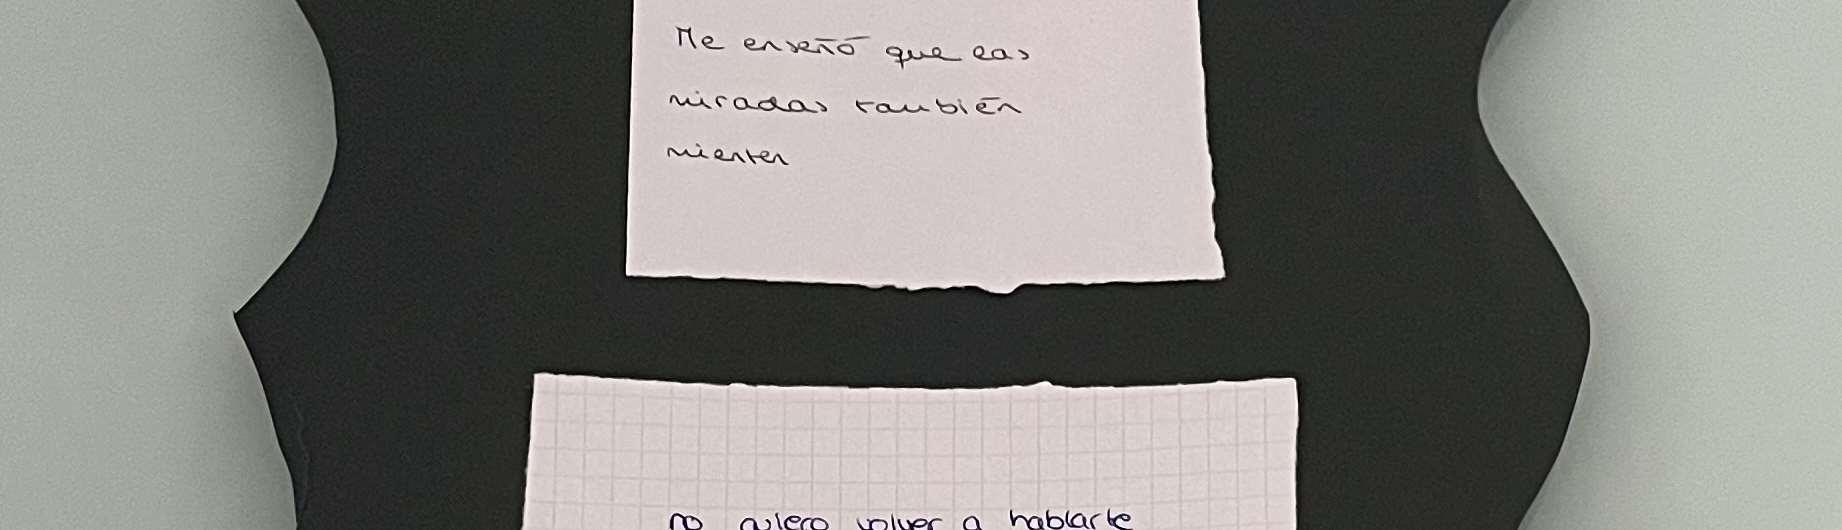 Me enseñó que las
miradas también
mienten
no quiero volver a hablarte